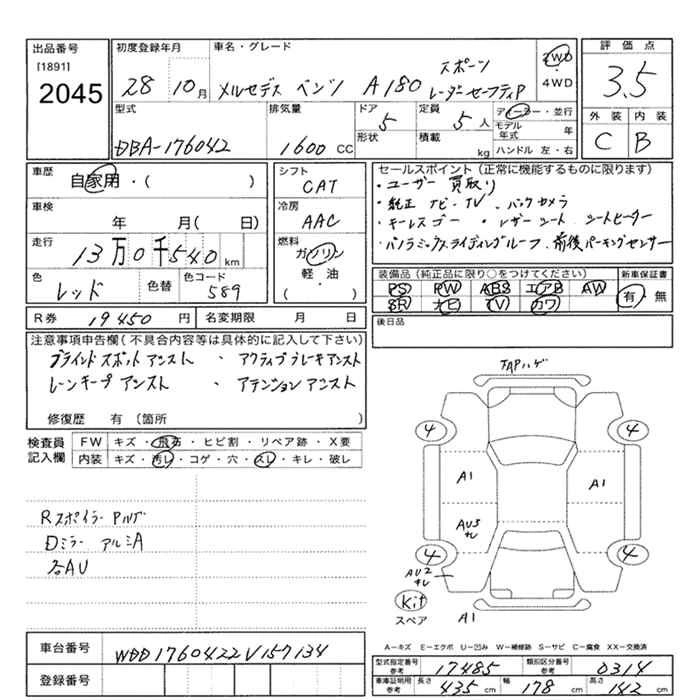 出品番号 初度登録年月 車名・グレード 評価点
[1891]
2045
28 10月 メルセデス ベンツ A180 スポーツ レーダーセーフティP 2WD・4WD 3.5
型式 排気量 ドア 定員 ディーラー・並行 外装 内装
DBA-176042 1600 CC 5 5人 モデル年式 年 C B
形状 積載 kg ハンドル 左・右
車歴 自家用・( )
シフト CAT
車検 年 月( 日)
冷房 AAC
走行 13万0千540km
燃料 ガソリン・軽・油・( )
色 レッド 色替 色コード 589
R券 19450円 名変期限 月 日
セールスポイント(正常に機能するものに限ります)
・ユーザー買取り
・純正ナビ・TV、バックカメラ
・キーレスゴー ・レザーシート シートヒーター
・パノラミックスライディングルーフ、前後パーキングセンサー
装備品(純正品に限り○をつけてください) 新車保証書
PS PW ABS エアB AW 有・無
SR ナビ TV カワ
後日品
注意事項申告欄(不具合内容等は具体的に記入して下さい)
ブラインドスポットアシスト 、アクティブブレーキアシスト
レーンキープアシスト 、アテンションアシスト
修復歴 有(箇所 )
検査員記入欄 FW キズ・飛石・ヒビ割・リペア跡・X要
内装 キズ・汚レ・コゲ・穴・スレ・キレ・破レ
Rスポイラー Pハゲ
Dミラー アルミA
各AU
FAPハゲ
4 4
A1 A1
AU3
サレ
4 4
AU2
サレ
Kit
スペア A1
車台番号 WDD1760422V157134
登録番号
A-キズ E-エクボ U-凹み W-補修跡 S-サビ C-腐食 XX-交換済
型式指定番号参考 17485 類別区分番号参考 0314
車庫証明用参考 長さ 435cm 幅 178cm 高さ 142cm